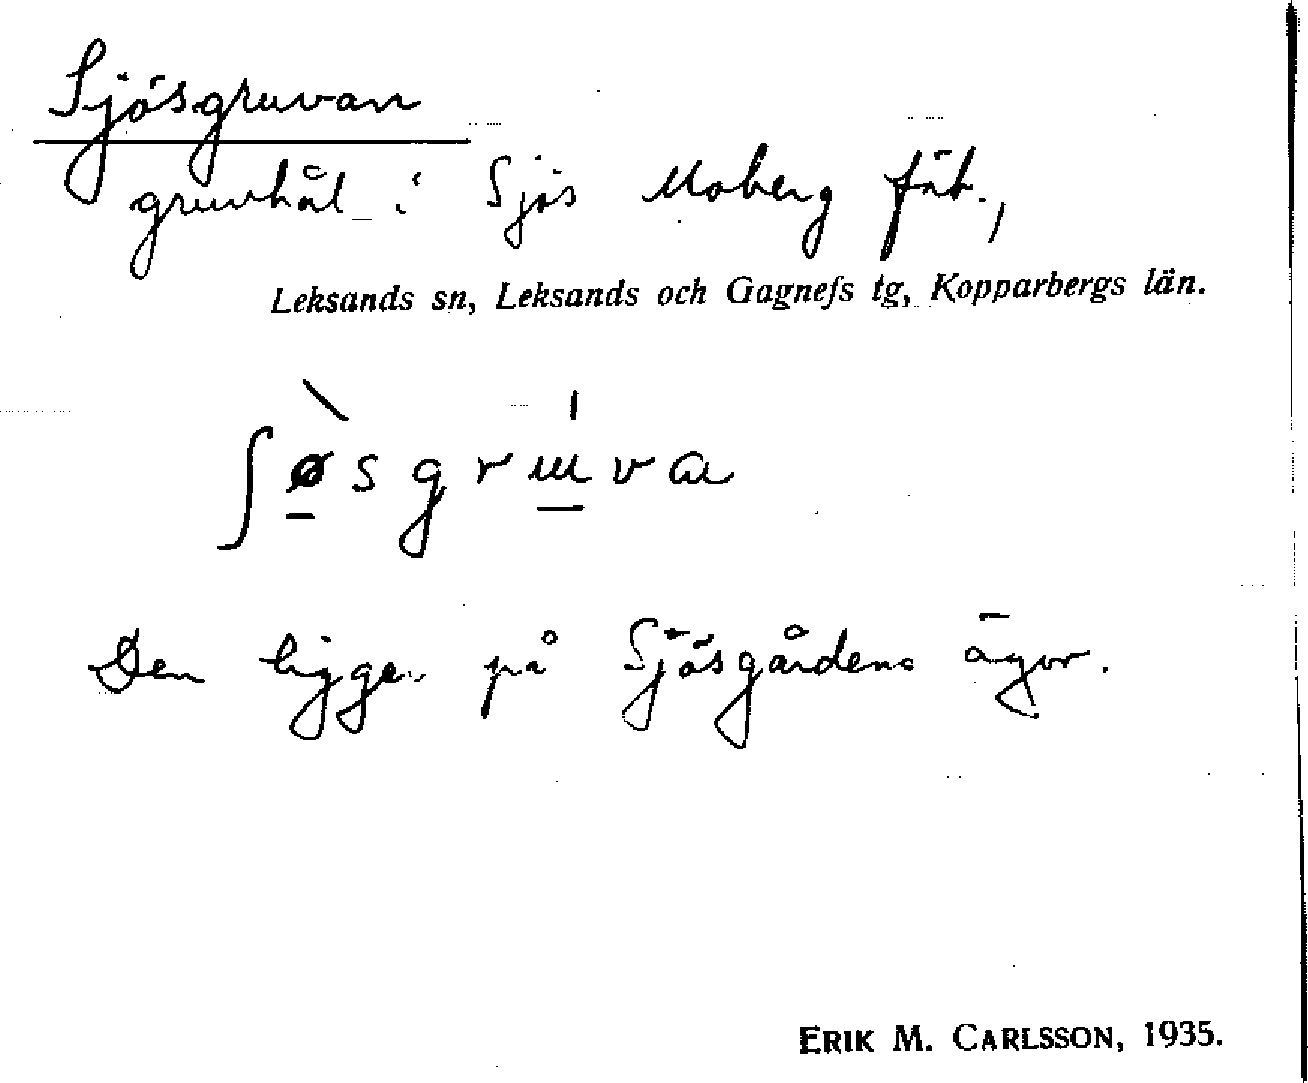 Sjösgruvan
gruvhål i Sjös Moberg fäb.,
Leksands sn, Leksands och Gagnefs tg, Kopparbergs län.
ʃø̠̀sgrɯ̠́va
Den ligger på Sjösgårdens ägor.
ERIK M. CARLSSON, 1935.